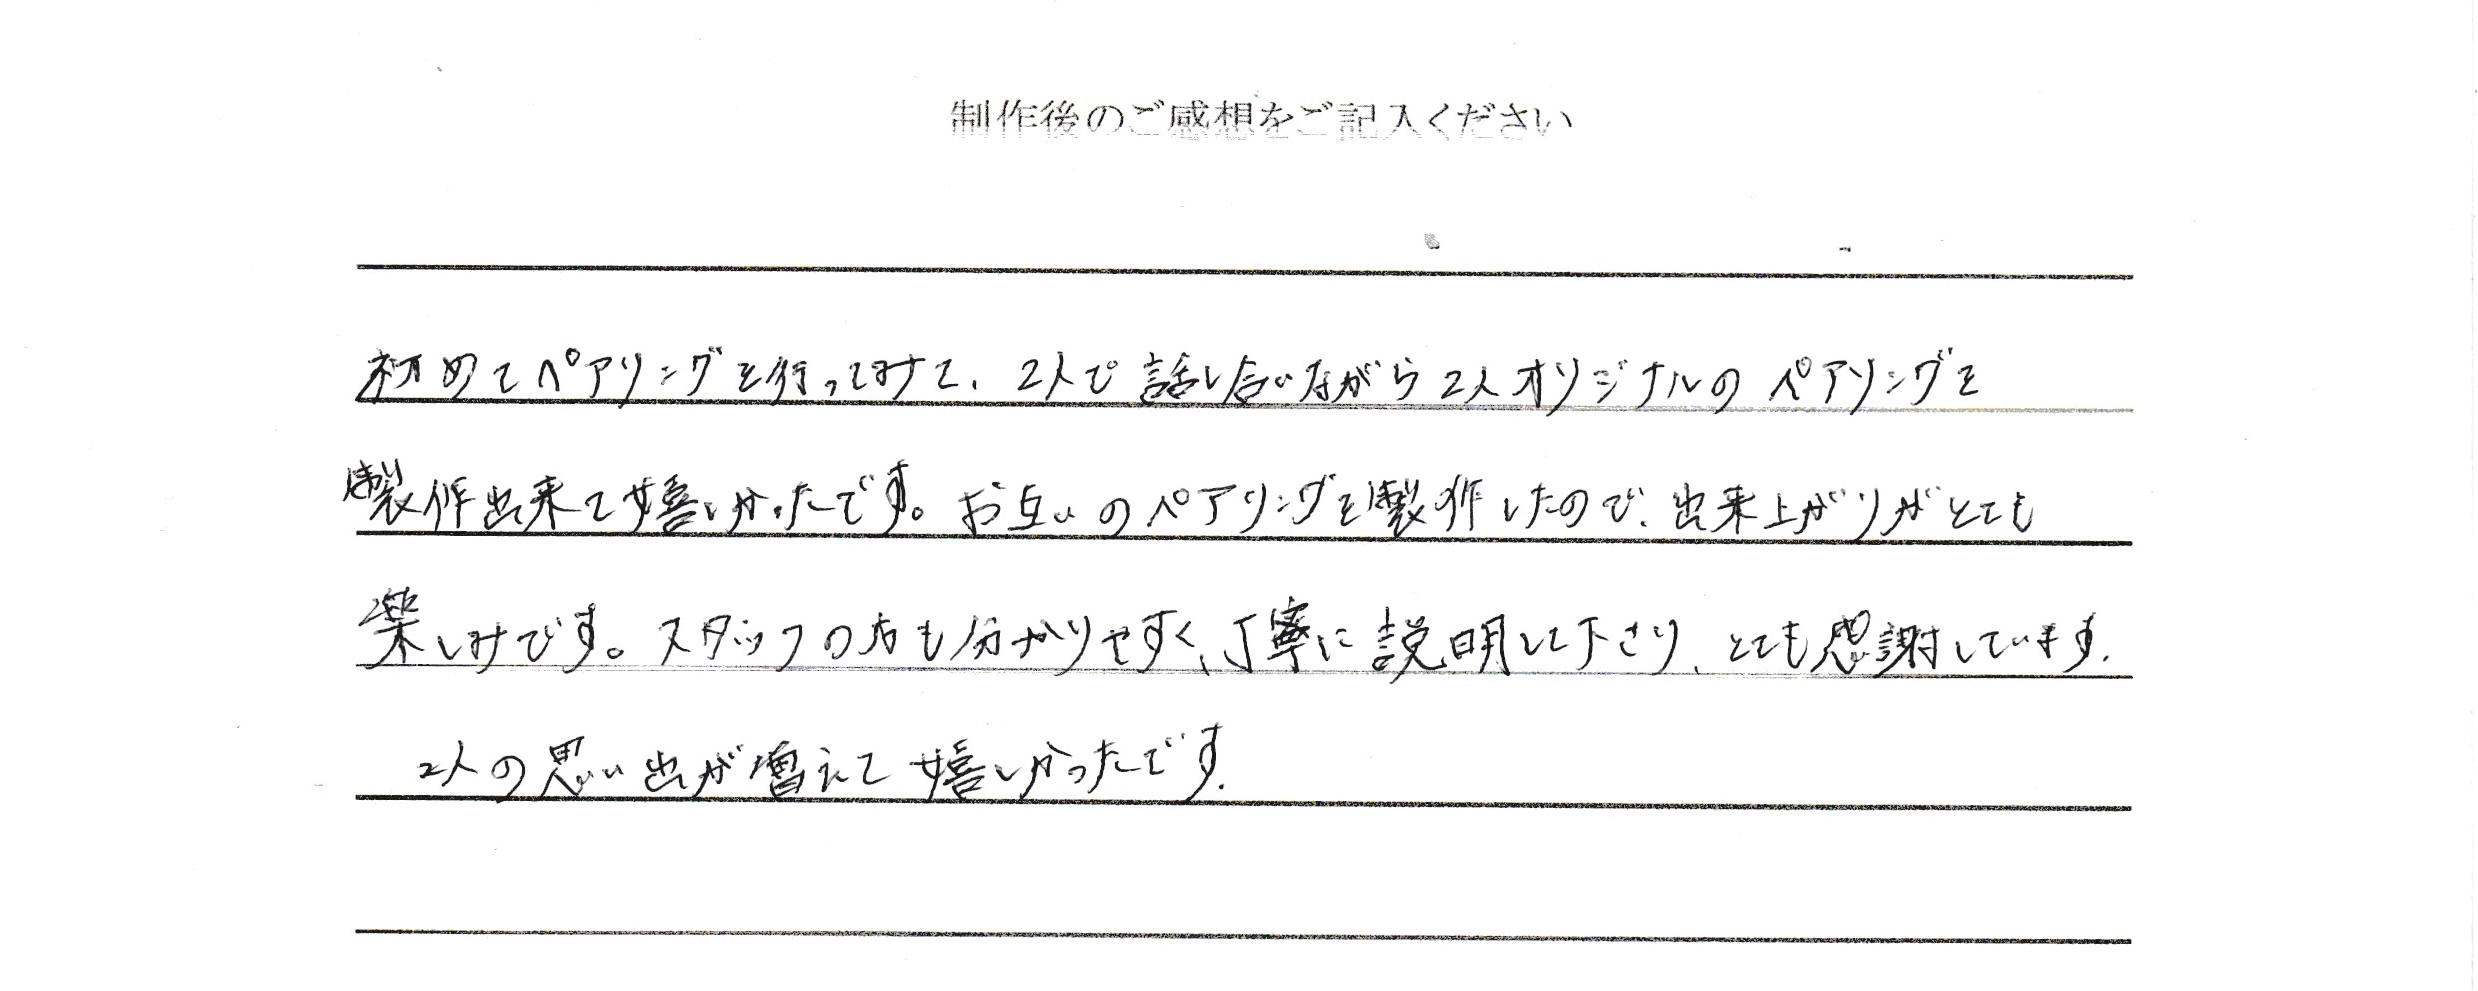 制作後のご感想をご記入ください
初めてペアリングを行ってみて、2人で話し合いながら2人オリジナルのペアリングを
製作出来て嬉しかったです。お互いのペアリングを製作したので、出来上がりがとても
楽しみです。スタッフの方も分かりやすく、丁寧に説明して下さり、とても感謝しています。
2人の思い出が増えて嬉しかったです。